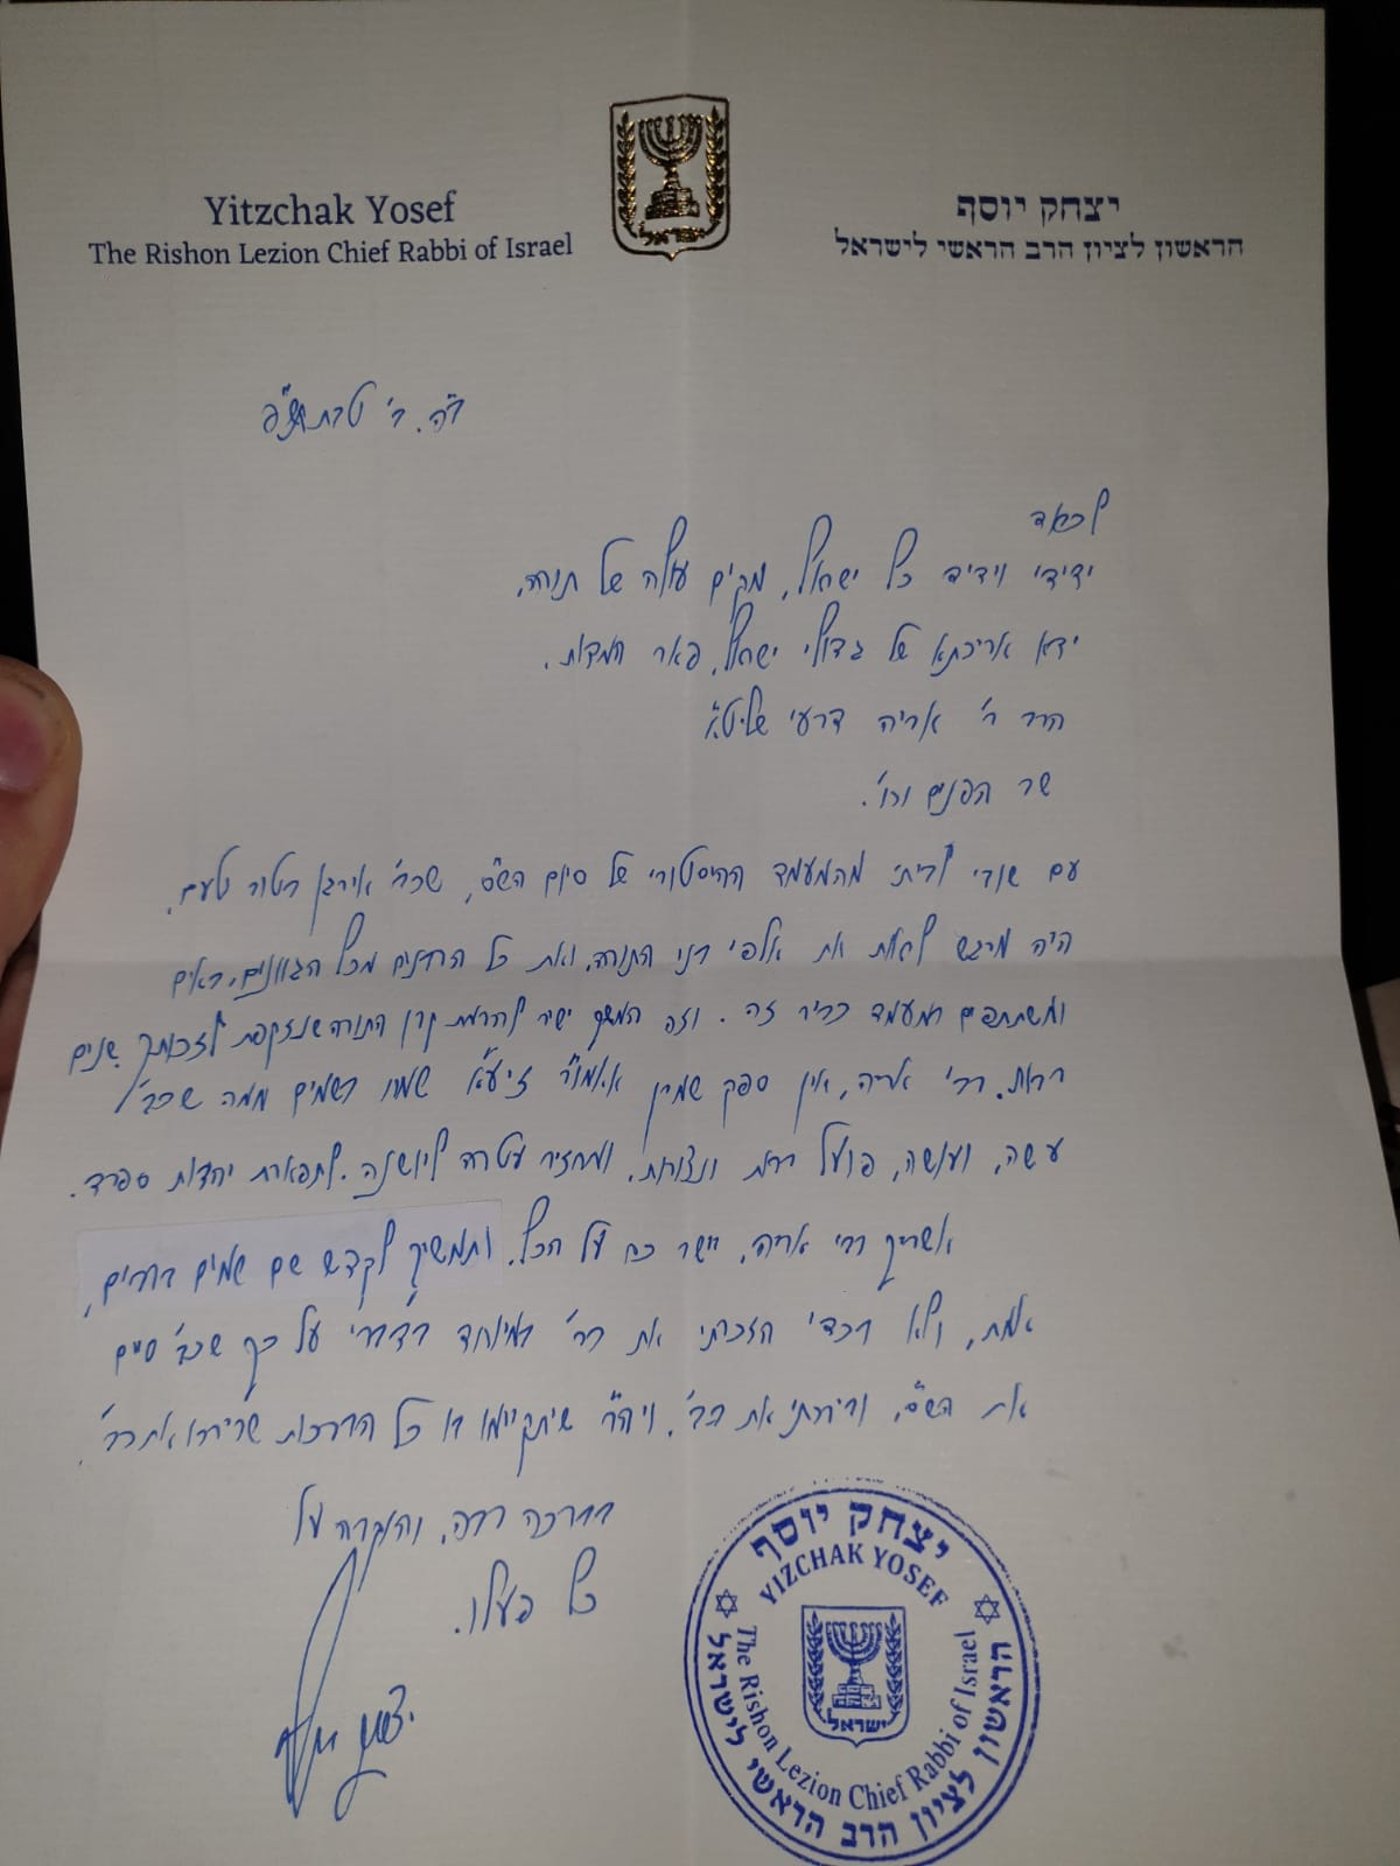 Yitzchak Yosef
The Rishon Lezion Chief Rabbi of Israel
ישראל
יצחק יוסף
הראשון לציון הרב הראשי לישראל
ב"ה. ב' טבת תש"פ
לכבוד
ידידי וידיד כל ישראל, מקים עולה של תורה,
ידא אריכתא של גדולי ישראל, פאר המדות.
הרב ר' אריה דרעי שליט"א
שר הפנים וכו'.
עם שובי לביתי מהמעמד ההיסטורי של סיום הש"ס, שכב' אירגן בטוב טעם.
היה מרגש לראות את אלפי בני התורה, ואת כל הרבנים מכל הגוונים, באים
ומשתתפים במעמד כביר זה. וזה המשך ישיר להרמת קרן התורה שנזקפת לזכותך שנים
רבות. רבי אריה, אין ספק שמרן אאמו"ר זיע"א שמח בשמים ממה שכב'
עשה, ועושה, פועל רבות ונצורות. ומחזיר עטרה ליושנה. לתפארת יהדות ספרד.
אשריך רבי אריה, יישר כח על הכל. ותמשיך לקדש שם שמים ברבים,
אמת, ולא בכדי הזכרתי את כב' במיוחד בדברי על כך שכב' סיים
את הש"ס, ובירכתי את כב'. ויה"ר שיתקיימו בו כל הברכות שבירכו את כב'.
בברכה רבה, והוקרה על
כל פעלו.
יצחק יוסף
יצחק יוסף
YIZCHAK YOSEF
ישראל
The Rishon Lezion Chief Rabbi of Israel
הראשון לציון הרב הראשי לישראל